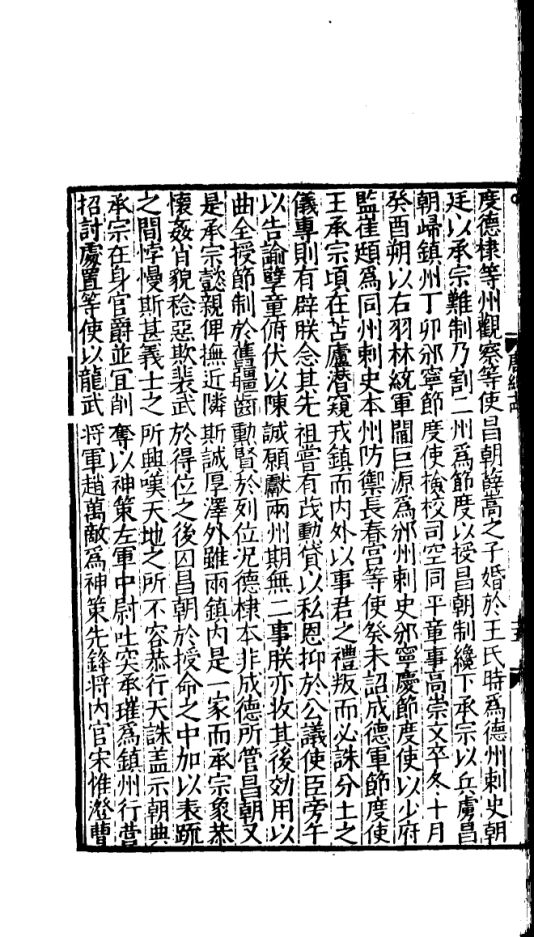 度德棣等州觀察等使昌朝薛嵩之子婚於王氏時爲德州刺史朝
廷以承宗難制乃割二州爲節度以授昌朝制纔下承宗以兵虜昌
朝歸鎮州丁卯邠寧節度使檢校司空同平章事高崇文卒冬十月
癸酉朔以右羽林統軍閻巨源爲邠州刺史邠寧慶節度使以少府
監崔頲爲同州刺史本州防禦長春宮等使癸未詔成德軍節度使
王承宗頃在苫廬潛窺戎鎮而内外以事君之禮叛而必誅分土之
儀專則有辟朕念其先祖嘗有茂勳貸以私恩抑於公議使臣旁午
以告諭孽童俯伏以陳誠願獻兩州期無二事朕亦收其後効用以
曲全授節制於舊疆齒勳賢於列位况德棣本非成德所管昌朝又
是承宗懿親俾撫近隣斯誠厚澤外雖兩鎮内是一家而承宗象恭
懷姦肖貌稔惡欺裴武於得位之後囚昌朝於授命之中加以表疏
之間悖慢斯甚義士之所興嘆天地之所不容恭行天誅盖示朝典
承宗在身官爵並冝削奪以神策左軍中尉吐突承璀爲鎮州行營
招討處置等使以龍武將軍趙萬敵爲神策先鋒將内官宋惟澄曹